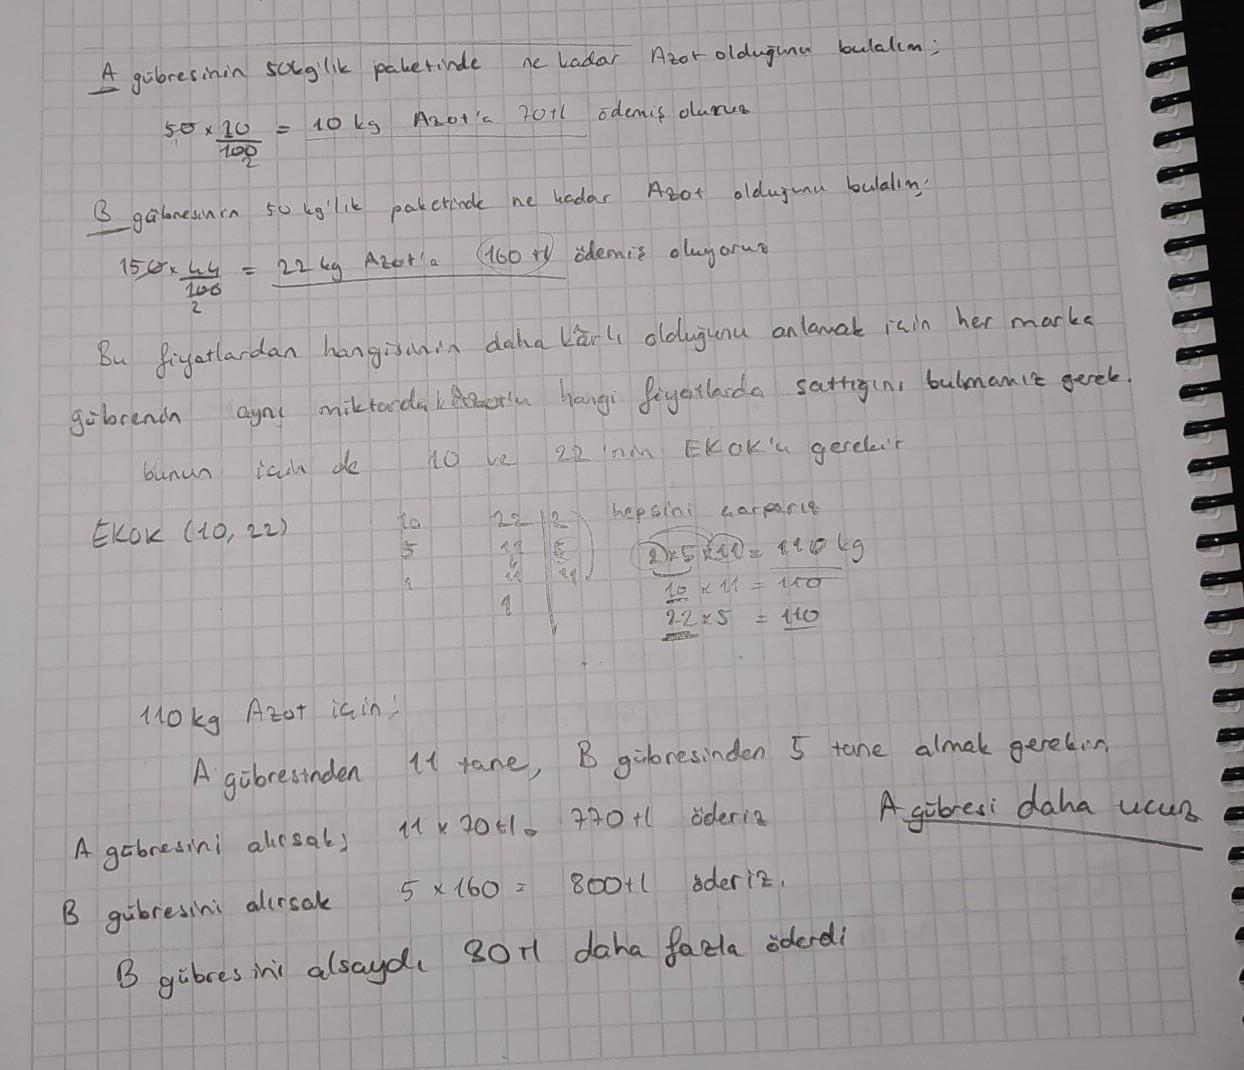 A gübresinin 50kg'lık paketinde ne kadar Azot olduğunu bulalım:
50 x 20/100 2 = 10 kg Azot'a 70tl ödemiş oluruz
B gübresinin 50 kg'lık paketinde ne kadar Azot olduğunu bulalım:
150 x 44/100 2 = 22 kg Azot'a 160 tl ödemiş oluyoruz
Bu fiyatlardan hangisinin daha kârlı olduğunu anlamak için her marka
gübrenin aynı miktardaki Azotu hangi fiyatlarda sattığını bulmamız gerek.
bunun için de 10 ve 22'nin EKOK'u gerekir
EKOK (10, 22) 10 22 2 hepsini çarparız
5 11 5 2x5x11 = 110 kg
1 11 11 10 x 11 = 110
1 22 x 5 = 110
110 kg Azot için:
A gübresinden 11 tane, B gübresinden 5 tane almak gerekir.
A gübresini alırsak; 11 x 70tl = 770 tl öderiz A gübresi daha ucuz
B gübresini alırsak 5 x 160 = 800tl öderiz.
B gübresini alsaydı 30 tl daha fazla öderdi